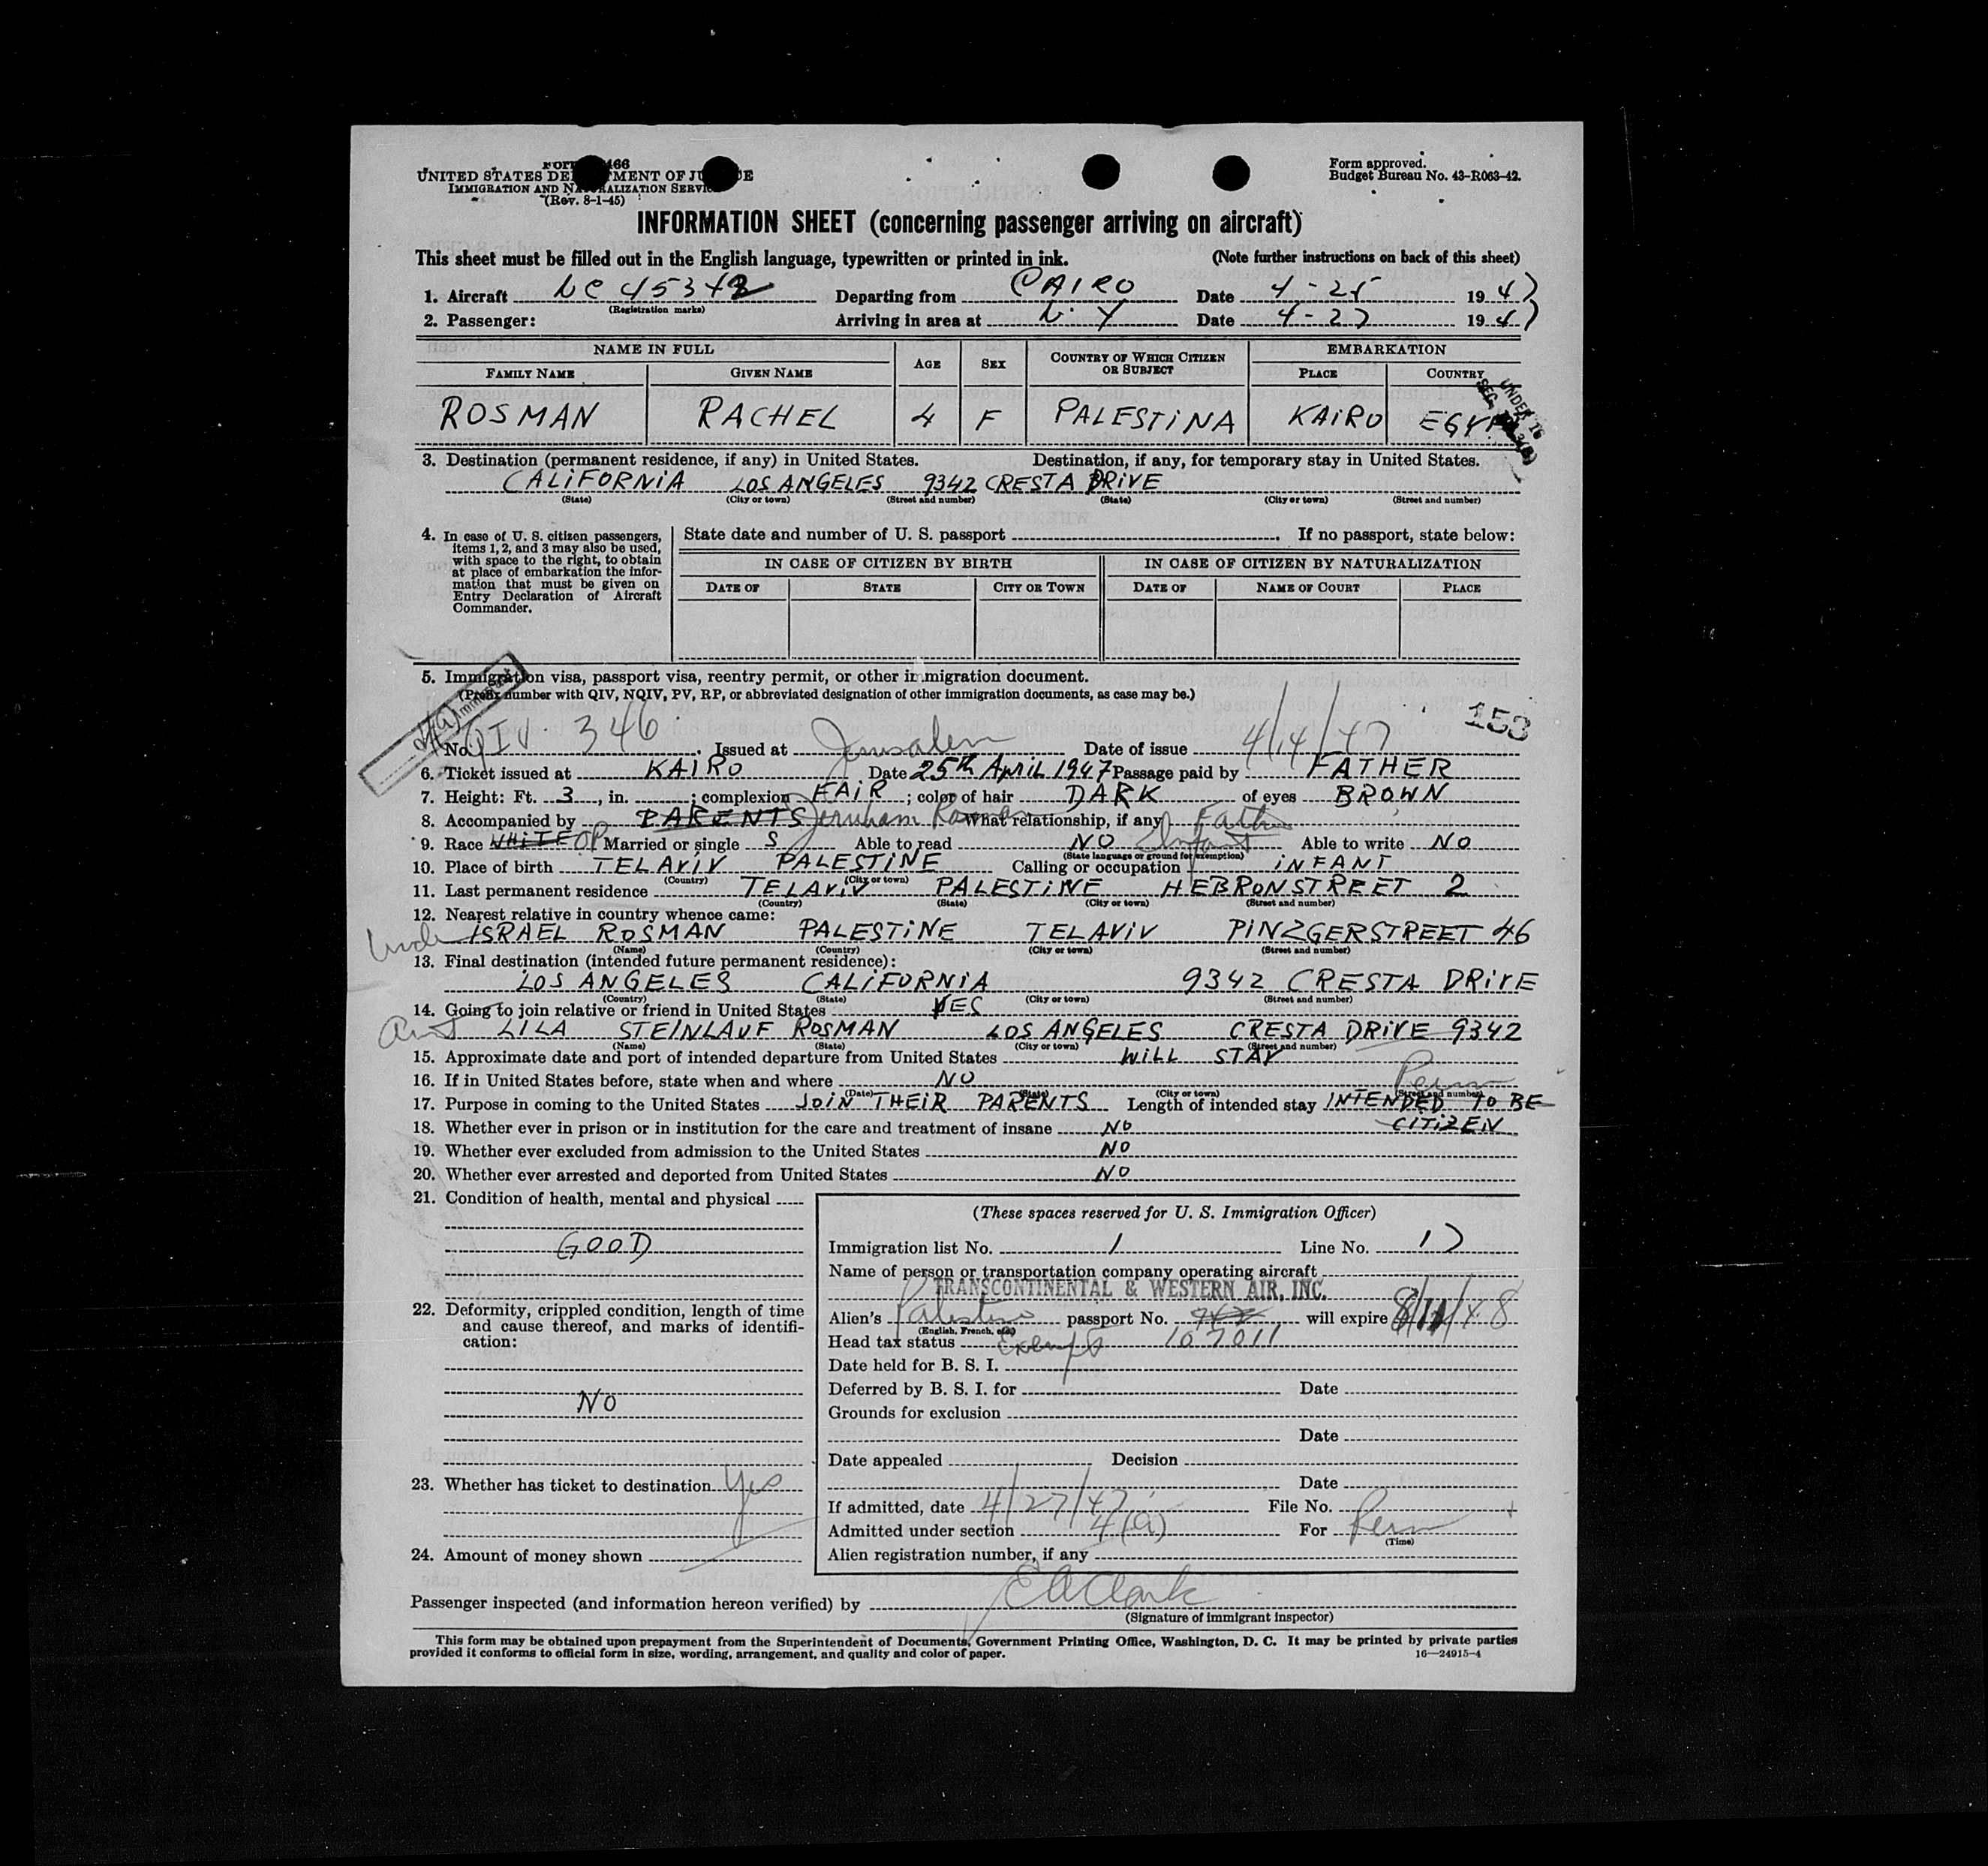 UNITED STATES DEPARTMENT OF JUSTICE
IMMIGRATION AND NATURALIZATION SERVICE
(Rev. 8-1-45)
Form approved.
Budget Bureau No. 43-R063-42.
INFORMATION SHEET (concerning passenger arriving on aircraft)
This sheet must be filled out in the English language, typewritten or printed in ink. (Note further instructions on back of this sheet)
1. Aircraft Departing from CAIRO Date 4-25 1947
(Registration marks)
2. Passenger: Arriving in area at N.Y Date 4-27 1947
NAME IN FULL AGE SEX COUNTRY OF WHICH CITIZEN OR SUBJECT EMBARKATION
FAMILY NAME GIVEN NAME PLACE COUNTRY
ROSMAN RACHEL 4 F PALESTINA KAIRO EGYPT
UNDER 16
3. Destination (permanent residence, if any) in United States. Destination, if any, for temporary stay in United States.
CALIFORNIA LOS ANGELES 9342 CRESTA DRIVE
(State) (City or town) (Street and number) (State) (City or town) (Street and number)
4. In case of U. S. citizen passengers,
items 1, 2, and 3 may also be used,
with space to the right, to obtain
at place of embarkation the infor-
mation that must be given on
Entry Declaration of Aircraft
Commander.
State date and number of U. S. passport If no passport, state below:
IN CASE OF CITIZEN BY BIRTH IN CASE OF CITIZEN BY NATURALIZATION
DATE OF STATE CITY OR TOWN DATE OF NAME OF COURT PLACE
5. Immigration visa, passport visa, reentry permit, or other immigration document.
(Prefix number with QIV, NQIV, PV, RP, or abbreviated designation of other immigration documents, as case may be.)
153
No. QIV 346. Issued at Jerusalem Date of issue 4/14/47
6. Ticket issued at KAIRO Date 25th APRIL 1947 Passage paid by FATHER
7. Height: Ft. 3, in. ; complexion FAIR ; color of hair DARK of eyes BROWN
8. Accompanied by PARENTS Jeruham Rosman What relationship, if any Father
9. Race WHITE Married or single S Able to read NO Infant Able to write NO
(State language or ground for exemption)
10. Place of birth TELAVIV PALESTINE Calling or occupation INFANT
(Country) (City or town)
11. Last permanent residence TELAVIV PALESTINE HEBRONSTREET 2
(Country) (State) (City or town) (Street and number)
12. Nearest relative in country whence came:
Uncle ISRAEL ROSMAN PALESTINE TELAVIV PINZGERSTREET 46
(Name) (Country) (City or town) (Street and number)
13. Final destination (intended future permanent residence):
LOS ANGELES CALIFORNIA 9342 CRESTA DRIVE
(Country) (State) (City or town) (Street and number)
14. Going to join relative or friend in United States YES
Aunt LILA STEINLAUF ROSMAN LOS ANGELES CRESTA DRIVE 9342
(Name) (State) (City or town) (Street and number)
15. Approximate date and port of intended departure from United States WILL STAY
16. If in United States before, state when and where NO Perm
(Date) (State) (City or town) (Street and number)
17. Purpose in coming to the United States JOIN THEIR PARENTS Length of intended stay INTENDED TO BE
18. Whether ever in prison or in institution for the care and treatment of insane NO CITIZEN
19. Whether ever excluded from admission to the United States NO
20. Whether ever arrested and deported from United States NO
21. Condition of health, mental and physical
GOOD
22. Deformity, crippled condition, length of time
and cause thereof, and marks of identifi-
cation:
NO
23. Whether has ticket to destination Yes
24. Amount of money shown
(These spaces reserved for U. S. Immigration Officer)
Immigration list No. 1 Line No. 17
Name of person or transportation company operating aircraft
TRANSCONTINENTAL & WESTERN AIR, INC.
Alien's Palestine passport No. will expire
(English, French, etc.)
Head tax status Exempt 107011
Date held for B. S. I.
Deferred by B. S. I. for Date
Grounds for exclusion
Date
Date appealed Decision
Date
If admitted, date 4/27/47 File No.
Admitted under section 4(a) For Perm
(Time)
Alien registration number, if any
Passenger inspected (and information hereon verified) by EA Clark
(Signature of immigrant inspector)
This form may be obtained upon prepayment from the Superintendent of Documents, Government Printing Office, Washington, D. C. It may be printed by private parties
provided it conforms to official form in size, wording, arrangement, and quality and color of paper. 16—24915-4